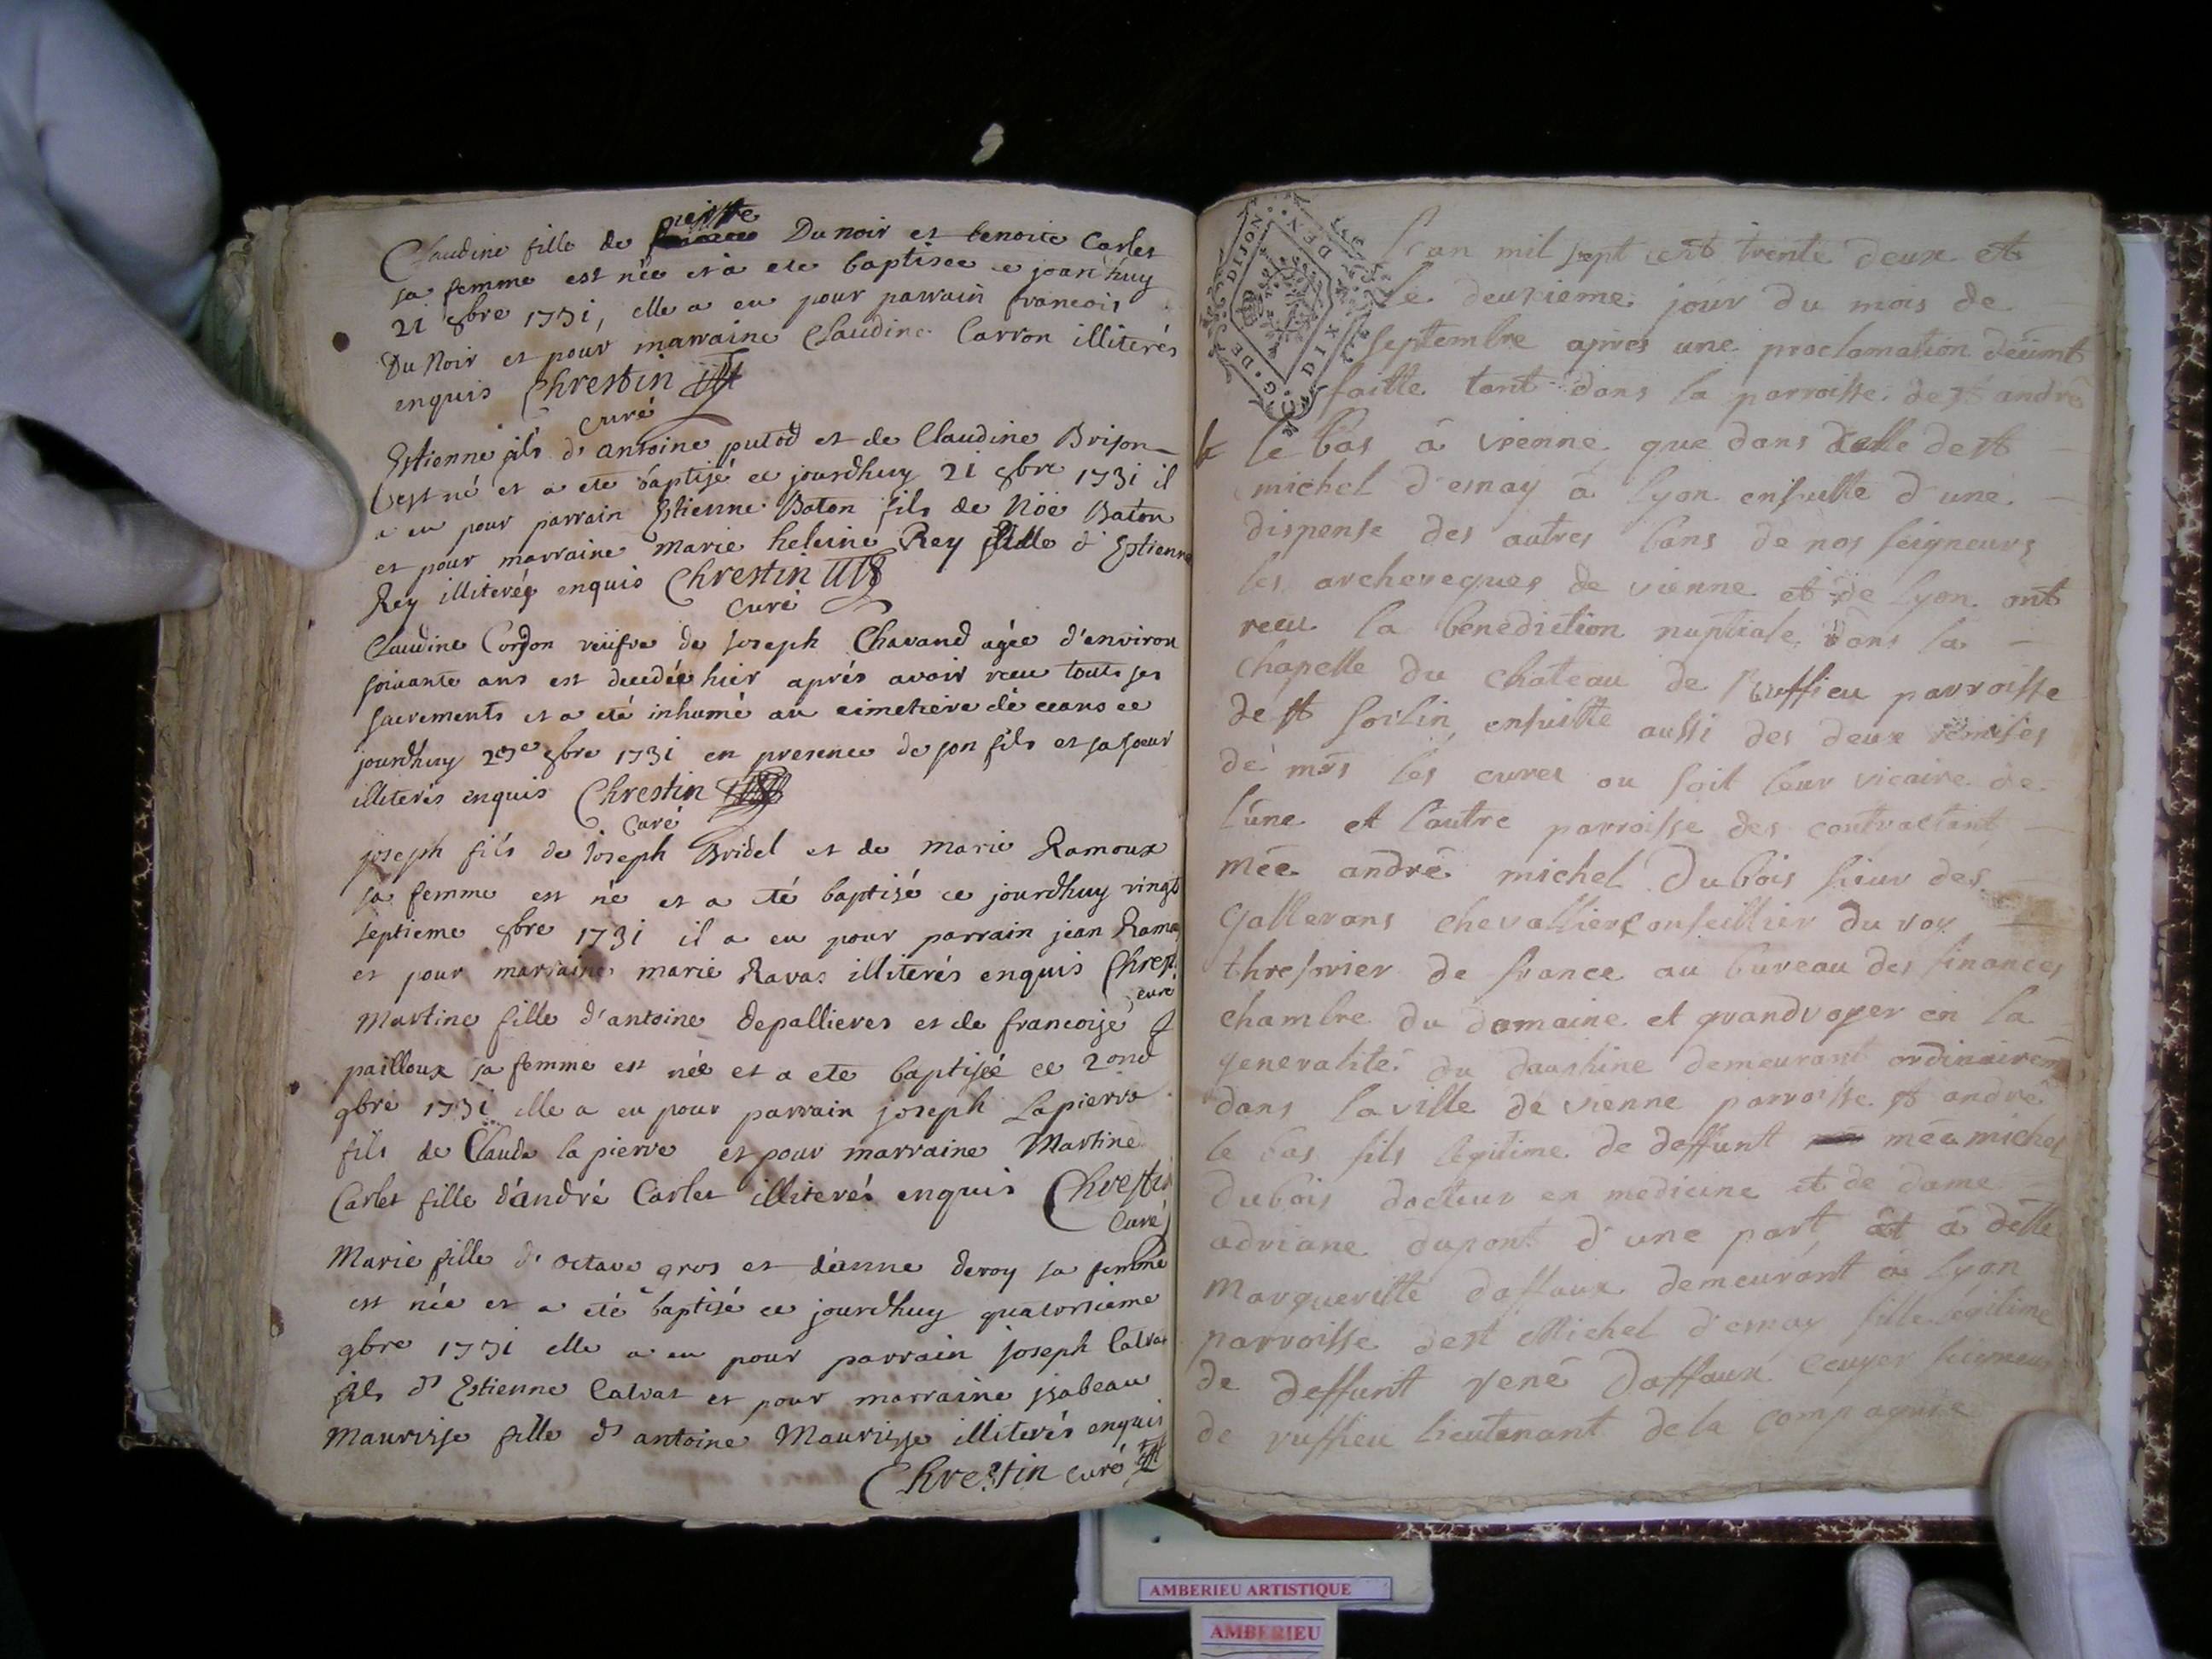 Claudine fille de pierre Du noir et benoite Carlet
sa femme est née et à ete baptisee ce jourd'huy
21 8bre 1731, elle a eu pour parrain francois
Du Noir et pour marraine Claudine Carron illiterés
enquis Chrestin
curé
Estienne fils d'antoine putod et de Claudine Brison
est né et a ete baptisé ce jourdhuy 21 8bre 1731 il
a eu pour parrain Estienne Baton fils de Noë Baton
et pour marraine marie heleine Rey fille d'Estienne
Rey illiterés enquis Chrestin
curé
Claudine Cordon veüfve de joseph Chavand agée d'environ
soixante ans est decedée hier aprés avoir receu touts ses
sacrements et a eté inhumé au cimetiere de ceans ce
jourdhuy 8bre 1731 en presence de son fils et sa soeur
illiterés enquis Chrestin
Curé
joseph fils de joseph Bridel et de marie Ramoux
sa femme est né et a eté baptisé ce jourdhuy vingt
septieme 8bre 1731 il a eu pour parrain jean Ramo
et pour marraine marie Ravas illiterés enquis Chrest
curé
Martine fille d'antoine depallieres et de francoise
pailloux sa femme est née et a ete baptiséé ce 2ond
9bre 1731 elle a eu pour parrain joseph Lapierre
fils de Claude la pierre et pour marraine Martine
Carlet fille d'andré Carlet illiterés enquis Chrestin
Curé
Marie fille d'octave gros et d'anne deroy sa femme
est née et a eté baptisé ce jourdhuy quatorsieme
9bre 1731 elle a eu pour parrain joseph Calvat
fils d'Estienne Calvat et pour marraine jsabeau
Maurisse fille d'antoine Maurisse illiterés enquis
Chrestin curé
G. DE DIJON
DIX DEN
L'an mil sept cent trente deux et
le deuxieme jour du mois de
septembre apres une proclamation deüment
faitte tant dans la parroisse de st andré
le bas à vienne que dans celle de st
michel d'esnay à lyon ensuitte d'une
dispense des autres bans de nos seigneurs
les archeveques de vienne et de lyon ont
receu la benediction nuptiale dans la
chapelle du chateau de Ruffieu parroisse
de st sorlin, ensuitte aussi des deux remises
de mrs les cures ou soit leur vicaire de
l'une et l'autre parroisse des contractant
mée andré michel Dubois sieur des
gallerans chevallier conseillier du roy
thresorier de france au bureau des finances
chambre du domaine et grandvoyer en la
generalité du dauphine demeurant ordinairem
dans la ville de vienne parroisse st andré
le bas fils legitime de deffunt mée michel
Dubois docteur en medicine et de dame
adriane dupont d'une part et à delle
Margueritte daffaux demeurant à lyon
parroisse de st Michel d'esnay fille legitime
de deffunt rené Daffaux Ecuyer seigneur
de ruffieu lieutenant de la compagnie
AMBERIEU ARTISTIQUE
AMBERIEU